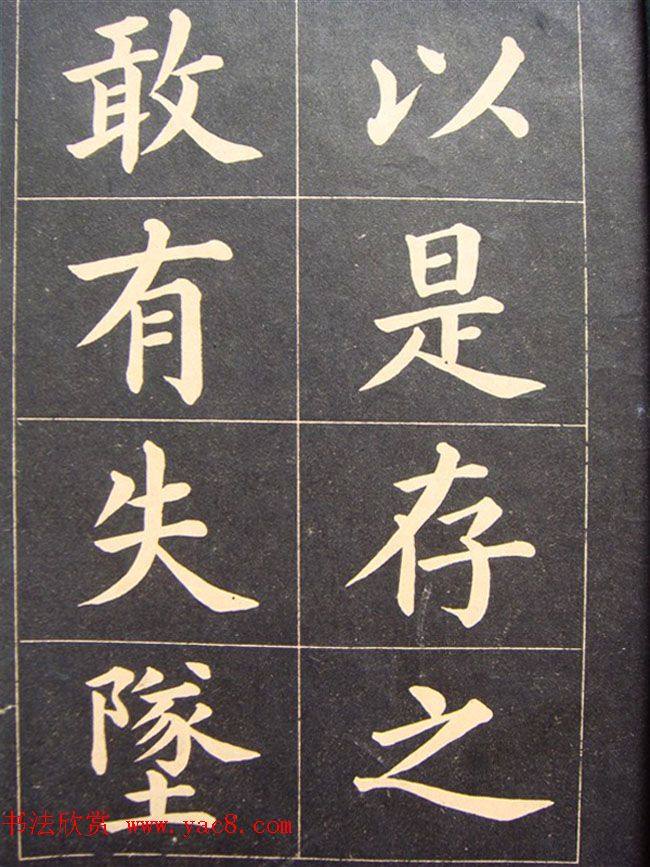 以是存之
敢有失墜
书法欣赏 www.yac8.com